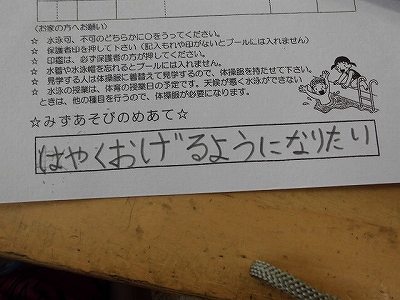 (お家の方へお願い)
☆ 水泳可、不可のどちらかに○をうってください。
☆ 保護者印を押して下さい(記入もれや印がないとプールには入れません)
☆ 印鑑は、必ず保護者の方が押してください。
☆ 水着や水泳帽を忘れるとプールには入れません。
☆ 見学する人は体操服に着替えて見学するので、体操服を持たせて下さい。
☆ 水泳の授業は、体育の授業日の予定です。天候が悪く水泳ができない
ときは、他の種目を行うので、体操服が必要になります。
☆みずあそびのめあて☆
はやくおげるようになりたい